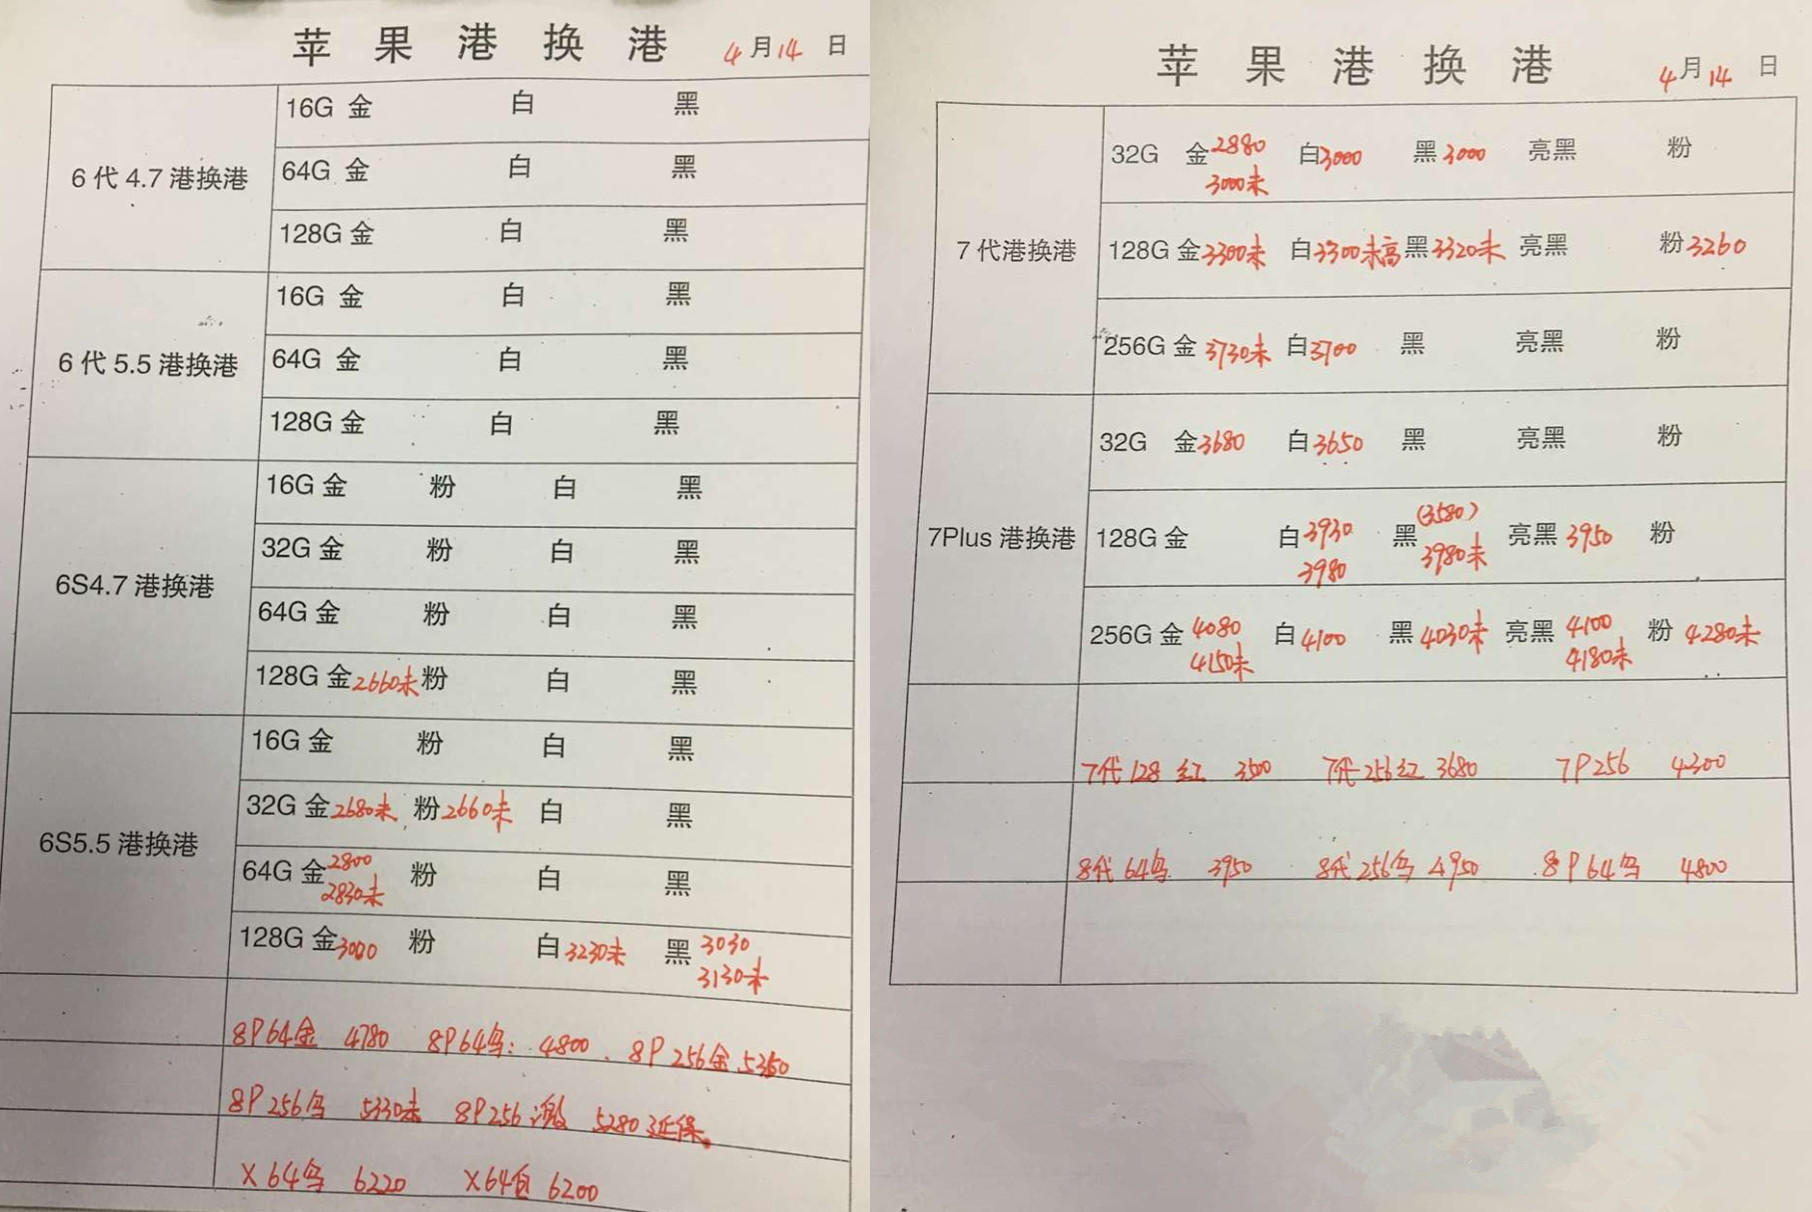 苹果港换港 4月14日
6代4.7港换港
16G 金 白 黑
64G 金 白 黑
128G 金 白 黑
6代5.5港换港
16G 金 白 黑
64G 金 白 黑
128G 金 白 黑
6S4.7港换港
16G 金 粉 白 黑
32G 金 粉 白 黑
64G 金 粉 白 黑
128G 金2660未 粉 白 黑
6S5.5港换港
16G 金 粉 白 黑
32G 金2680未 粉2660未 白 黑
64G 金2800 粉 白 黑
2830未
128G 金3000 粉 白3230未 黑3030
3130未
8P64金 4780 8P64乌: 4800 8P256金 5350
8P256乌 5330未 8P256 5280延保
X64乌 6220 X64白 6200
苹果港换港 4月14日
7代港换港
32G 金2880 白3000 黑3000 亮黑 粉
3000未
128G 金3300未 白3300未高 黑3320未 亮黑 粉3260
256G 金3730未 白3700 黑 亮黑 粉
7Plus港换港
32G 金3680 白3650 黑 亮黑 粉
(3580)
128G 金 白3930 黑3980未 亮黑3950 粉
3980
256G 金4080 白4100 黑4030未 亮黑4100 粉4280未
4150未 4180未
7代128红 3500 7代256红 3680 7P256 4300
8代64乌 3950 8代256乌 4950 8P64乌 4800